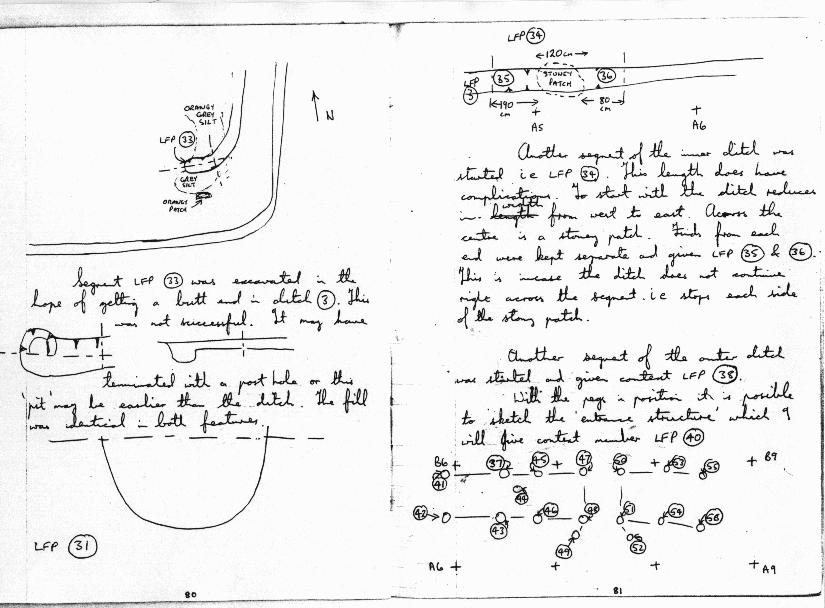 ORANGY
GREY
SILT
N
LFP 33
GREY
SILT
ORANGY
PATCH
Segment LFP 33 was excavated in the
hope of getting a butt end in ditch 3. This
was not successful. It may have
terminated with a post hole or this
'pit' may be earlier than the ditch. The fill
was identical in both features.
LFP 31
80
LFP 34
120cm
LFP
3
35
STONEY
PATCH
36
190
cm
80
cm
A5
A6
Another segment of the inner ditch was
started i.e LFP 34. This length does have
complications. To start with the ditch reduces
width
in length from west to east. Across the
centre is a stoney patch. Finds from each
end were kept separate and given LFP 35 & 36.
This is incase the ditch does not continue
right across the segment. i.e stops each side
of the stony patch.
Another segment of the outer ditch
was started and given context LFP 38.
With the pegs in position it is possible
to sketch the 'entrance structure' which I
will give context number LFP 40
B6
37
45
47
50
53
55
B9
41
44
42
43
46
48
51
54
58
49
52
A6
A9
81